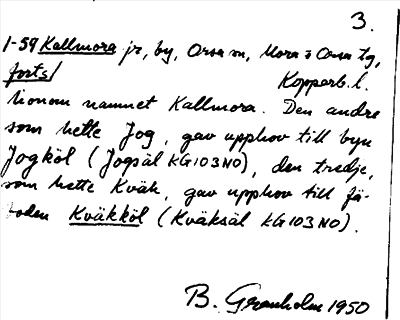 3.
1-59 Kallmora jr, by, Orsa sn, Mora o Orsa tg,
forts/ Kopparb. l.
honom namnet Kallmora. Den andre
som hette Jog, gav upphov till byn
Jogköl (Jogsäl KG103NO), den tredje,
som hette Kväk, gav upphov till fä-
boden Kväkköl (Kväksäl KG103NO).
B. Granholm 1950